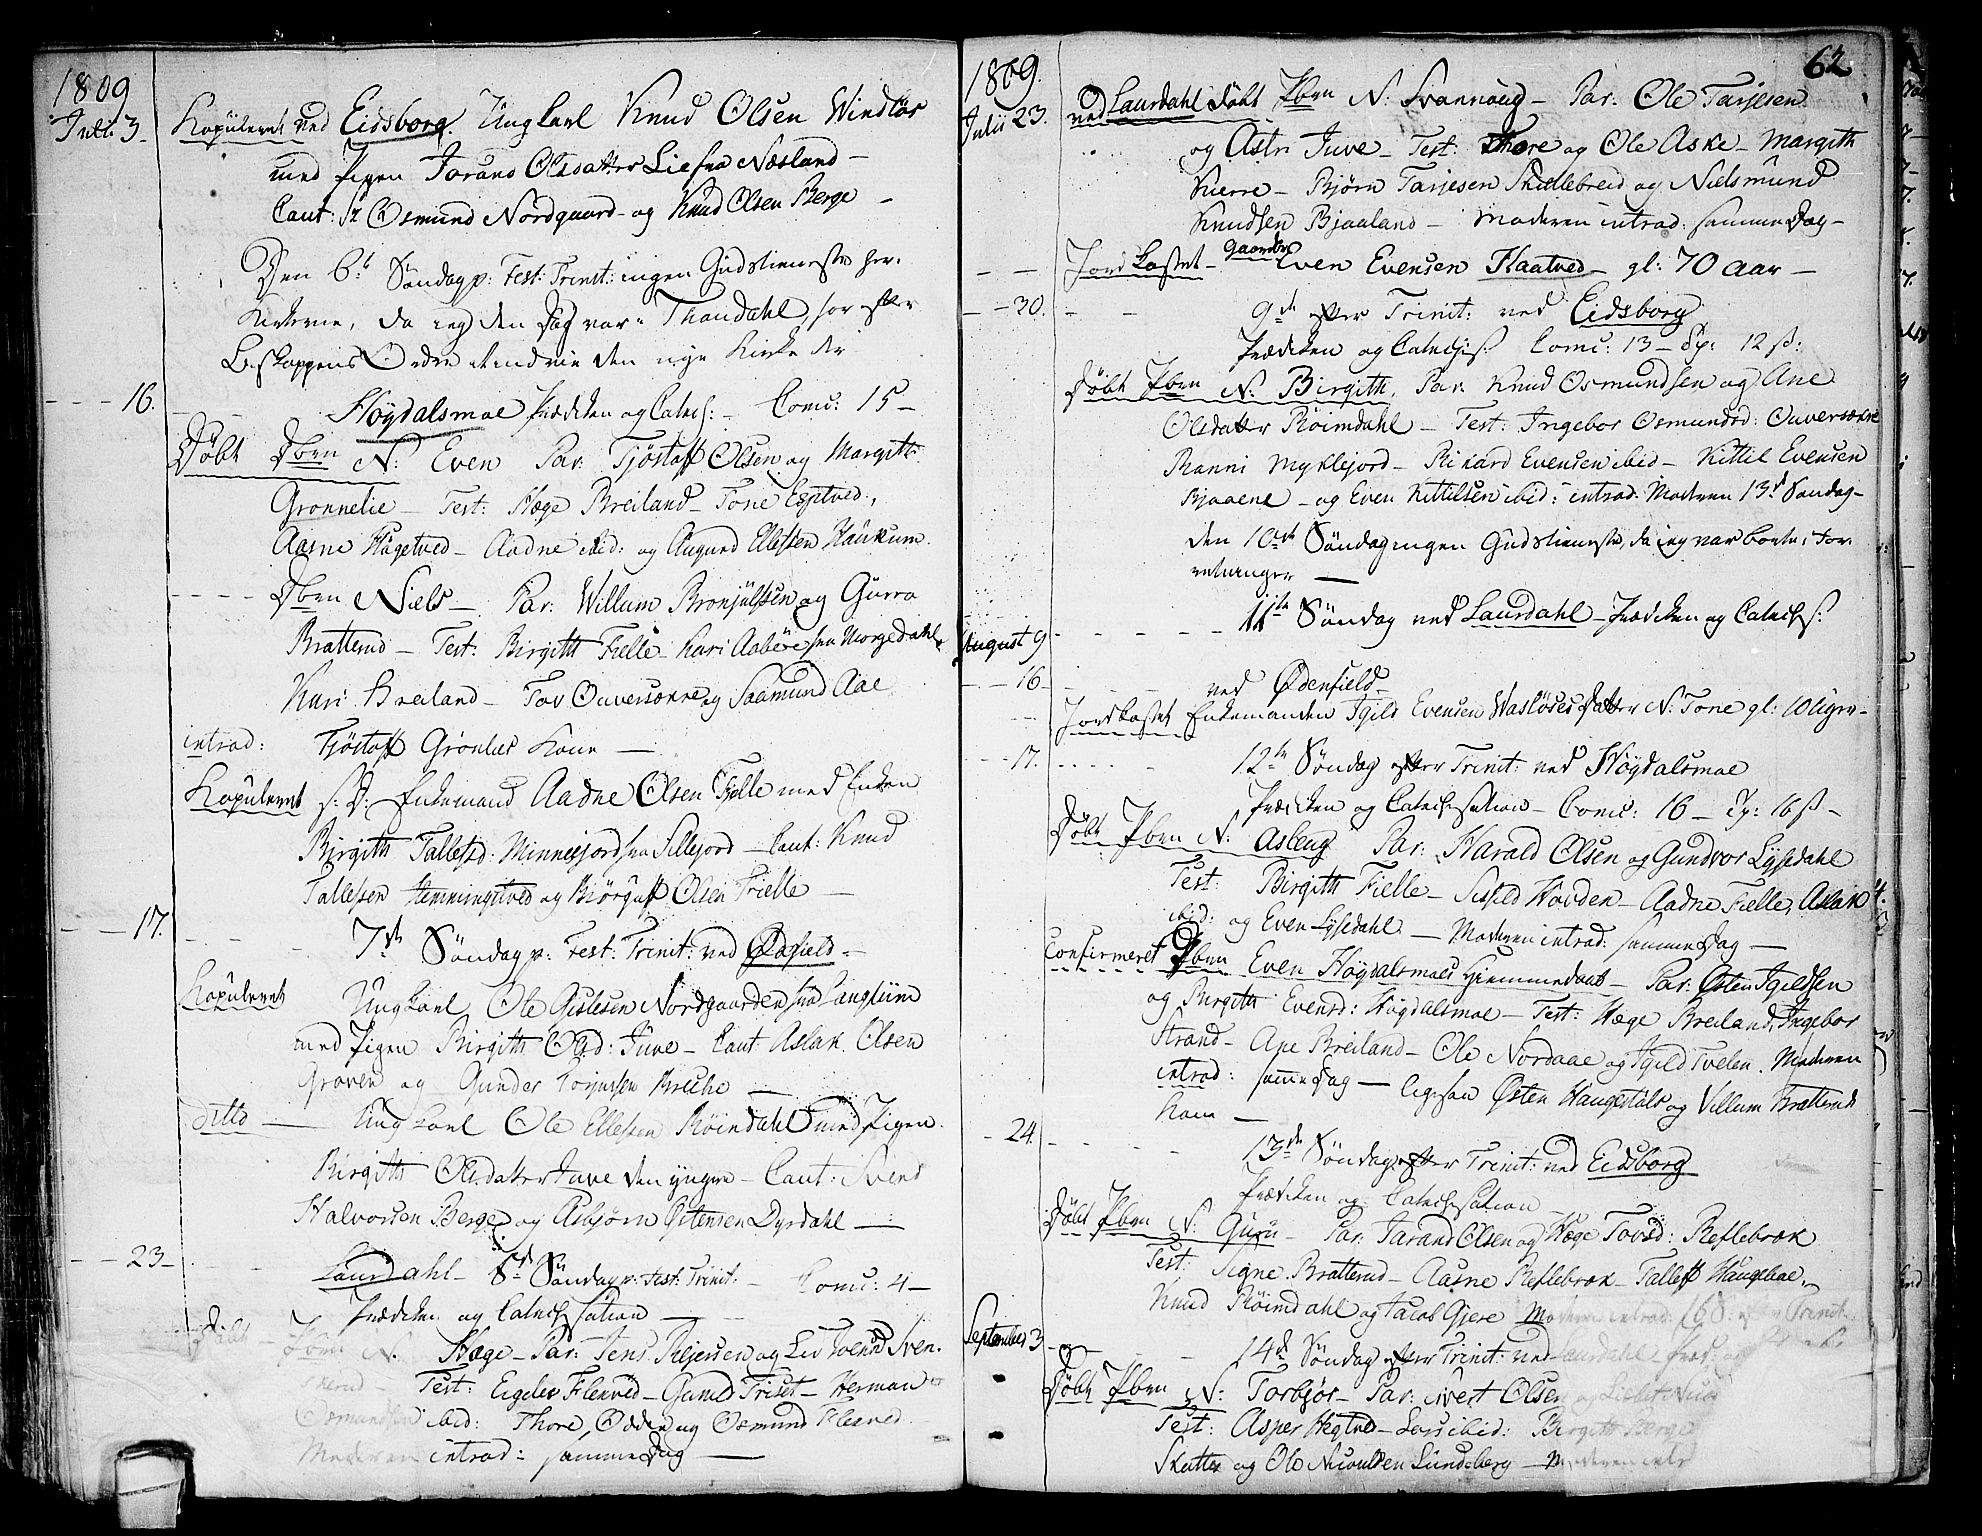 1809
Julii 3. Kopuleret ved Eidsborg. Ungkarl Knud Olsen Windlös
med Pigen Jorand Olsdatter Lie fra Næsland —
Caut: Sr Osmund Nordgaard — og Knud Olsen Berge —
Den 6te Søndag p: Fest: Trinit: ingen Gudstieneste her i
Kirkerne, da ieg den Dag var i Thondahl, for efter
Biskoppens Ordre at indvie den nye Kirke der
— 16. Høydalsmoe Prædiken og Catech: — Comu: 15 —
Døbt Dben N: Even Par: Tjöstaff Olsen og Margith
Grønnelie — Test: Hæge Breiland — Tone Egtved,
Aasne Hagetved — Aadne ibid: og Augund Ellefsen Haukum.
Dben Niels — Par: Willum Bronjulfsen og Gurro
Bratterud — Test: Birgith Fielle — Kari Aabøe fra Morgedahl,
Kari Breiland — Tov Ouversonne og Saamund Aae
introd: Tjöstaff Grönlies Kone —
Kopuleret s: D: Enkemand Aadne Olsen Fjelle med Enken
Birgith Tallefsd: Minnesjord fra Sillejord — Caut: Knud
Tallefsen Hemmingstved og Biörguff Olsen Fielle —
— 17. 7de Søndag p: Fest: Trinit: ved Ødefield —
Kopuleret Ungkarl Ole Gislesen Nordgaarden fra Langluim
med Pigen Birgith Olsd: Juve — Caut: Aslak Olsen
Groven og Gunder Torjussen Bruhe —
ditto — Ungkarl Ole Ellefsen Röimdahl med Pigen
Birgith Olsdatter Juve den yngre — Caut: Svend
Halvorsen Berge og Asbjørn Østensen Dyrdahl —
— 23 — Laurdahl — 8de Søndag p: Fest: Trinit: — Comu: 4 —
Prædiken og Catechisation —
Døbt Pben N. Hæge — Par: Jens Rejersen og Liv
Test: Eigelev Flekved — Gunild Triset — Herman
Osmundsen ibid: Thore, Odde og Osmund Flekved
Moderen introd: samme Dag —
62
1809.
Julii 23. ved Laurdahl døbt Pben N: Svannoug — Par: Ole Tarjesen
og Astri Juve — Test: Thore og Ole Aske — Margith
Kierre — Bjørn Tarjesen Skullebreid og Nielsmund
Knudsen Bjaaland — Moderen introd: samme Dag —
— — Jordkastet — Gaardbr. Even Evensen Kaatved — gl: 70 aar —
— 30. 9de efter Trinit: ved Eidsborg
Prædiken og Catechis: Comu: 13 — Op: 12 ß:
Døbt Pben N: Birgith, Par: Knud Osmundsen og Ane
Olsdatter Röimdahl — Test: Ingebor Osmundsd: Ouversonne
Ranni Myklejord — Rikard Evensen ibid — Kittil Evensen
Bjaaene — og Even Kittilsen ibid: introd: Moderen 13de Søndag —
Den 10de Søndag ingen Gudstieneste, da ieg var borte i For-
retninger —
August 9 11te Søndag ved Laurdahl — Prædiken og Catechis:
— 16 — ved Ødenfield —
Jordkastet Enkemanden Igild Evensen Wasløses Datter N: Tone gl: 10 Uger —
— 17. 12te Søndag efter Trinit: ved Høydalsmoe
Prædiken og Catechisation — Comu: 16 — Op: 16 ß —
Døbt Pben N: Asleug Par: Harald Olsen og Gundvor Lysedahl
Test: Birgith Fielle — Sissild Hovden — Aadne Fielle, Aslak
ibid: og Even Lysedahl — Moderen introd: samme Dag —
Confirmeret Dben Even Høydalsmoes Hiemmedaab — Par: Østen Igildsen
og Birgith Evensd: Høgdalsmoe — Test: Hæge Breiland, Ingebor
Strand — Ane Breiland — Ole Nordaae og Igild Tvelen. Moderen
introd: samme Dag — ligesaa Østen Haugestuls og Villum Bratteruds
Kone —
— 24. 13de Søndag efter Trinit: ved Eidsborg
Prædiken og Catechisation
Døbt Pben N: Guru — Par: Jarand Olsen og Hæge Tovsd: Reflebræk
Test: Signe Bratterud — Aasne Reflebræk — Talleff Haugebae,
Knud Röimdahl og Jacob Gjere Moderen introd:
September 3 14de Søndag efter Trinit: ved Laurdahl
Døbt Pben N: Torbjör — Par: Sivert Olsen
Test: Asper Hegtved — Lars ibid: Birgith Berge
Skutter og Ole Nicoulsen Lundeberg — Moderen intr